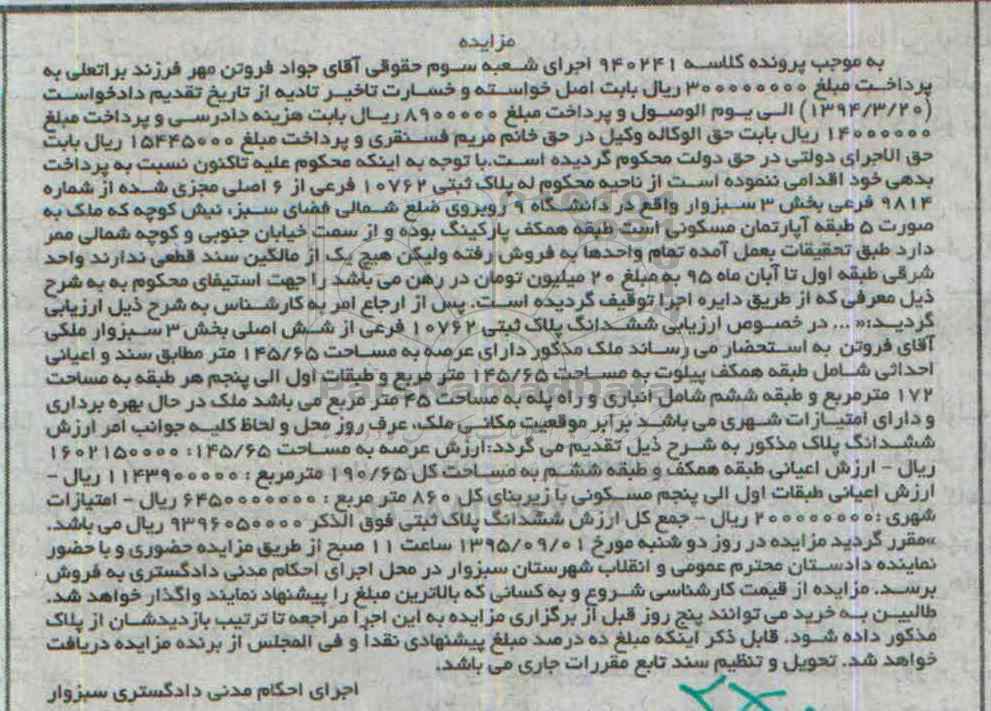 مزایده
به موجب پرونده کلاسه ۹۴۰۲۴۱ اجرای شعبه سوم حقوقی آقای جواد فروتن مهر فرزند براتعلی به
پرداخت مبلغ ۳۰۰۰۰۰۰۰۰ ریال بابت اصل خواسته و خسارت تاخیر تادیه از تاریخ تقدیم دادخواست
(۱۳۹۴/۳/۲۰) الی یوم الوصول و پرداخت مبلغ ۸۹۰۰۰۰۰ ریال بابت هزینه دادرسی و پرداخت مبلغ
۱۴۰۰۰۰۰۰ ریال بابت حق الوکاله وکیل در حق خانم مریم فسنقری و پرداخت مبلغ ۱۵۴۴۵۰۰۰ ریال بابت
حق الاجرای دولتی در حق دولت محکوم گردیده است.با توجه به اینکه محکوم علیه تاکنون نسبت به پرداخت
بدهی خود اقدامی ننموده است از ناحیه محکوم له پلاک ثبتی ۱۰۷۶۲ فرعی از ۶ اصلی مجزی شده از شماره
۹۸۱۴ فرعی بخش ۳ سبزوار واقع در دانشگاه ۹ روبروی ضلع شمالی فضای سبز، نبش کوچه که ملک به
صورت ۵ طبقه آپارتمان مسکونی است طبقه همکف پارکینگ بوده و از سمت خیابان جنوبی و کوچه شمالی ممر
دارد طبق تحقیقات بعمل آمده تمام واحدها به فروش رفته ولیکن هیچ یک از مالکین سند قطعی ندارند واحد
شرقی طبقه اول تا آبان ماه ۹۵ به مبلغ ۲۰ میلیون تومان در رهن می باشد را جهت استیفای محکوم به به شرح
ذیل معرفی که از طریق دایره اجرا توقیف گردیده است. پس از ارجاع امر به کارشناس به شرح ذیل ارزیابی
گردید:« ... در خصوص ارزیابی ششدانگ پلاک ثبتی ۱۰۷۶۲ فرعی از شش اصلی بخش ۳ سبزوار ملکی
آقای فروتن به استحضار می رساند ملک مذکور دارای عرصه به مساحت ۱۴۵/۶۵ متر مطابق سند و اعیانی
احداثی شامل طبقه همکف پیلوت به مساحت ۱۴۵/۶۵ متر مربع و طبقات اول الی پنجم هر طبقه به مساحت
۱۷۲ مترمربع و طبقه ششم شامل انباری و راه پله به مساحت ۴۵ متر مربع می باشد ملک در حال بهره برداری
و دارای امتیازات شهری می باشد برابر موقعیت مکانی ملک، عرف روز محل و لحاظ کلیه جوانب امر ارزش
ششدانگ پلاک مذکور به شرح ذیل تقدیم می گردد:ارزش عرصه به مساحت ۱۴۵/۶۵: ۱۶۰۲۱۵۰۰۰۰
ریال – ارزش اعیانی طبقه همکف و طبقه ششم به مساحت کل ۱۹۰/۶۵ مترمربع : ۱۱۴۳۹۰۰۰۰۰ ریال –
ارزش اعیانی طبقات اول الی پنجم مسکونی با زیربنای کل ۸۶۰ متر مربع : ۶۴۵۰۰۰۰۰۰۰ ریال – امتیازات
شهری :۲۰۰۰۰۰۰۰۰ ریال – جمع کل ارزش ششدانگ پلاک ثبتی فوق الذکر ۹۳۹۶۰۵۰۰۰۰ ریال می باشد.
»مقرر گردید مزایده در روز دو شنبه مورخ ۱۳۹۵/۰۹/۰۱ ساعت ۱۱ صبح از طریق مزایده حضوری و با حضور
نماینده دادستان محترم عمومی و انقلاب شهرستان سبزوار در محل اجرای احکام مدنی دادگستری به فروش
برسد. مزایده از قیمت کارشناسی شروع و به کسانی که بالاترین مبلغ را پیشنهاد نمایند واگذار خواهد شد.
طالبین به خرید می توانند پنج روز قبل از برگزاری مزایده به این اجرا مراجعه تا ترتیب بازدیدشان از پلاک
مذکور داده شود. قابل ذکر اینکه مبلغ ده درصد مبلغ پیشنهادی نقدا و فی المجلس از برنده مزایده دریافت
خواهد شد. تحویل و تنظیم سند تابع مقررات جاری می باشد.
اجرای احکام مدنی دادگستری سبزوار